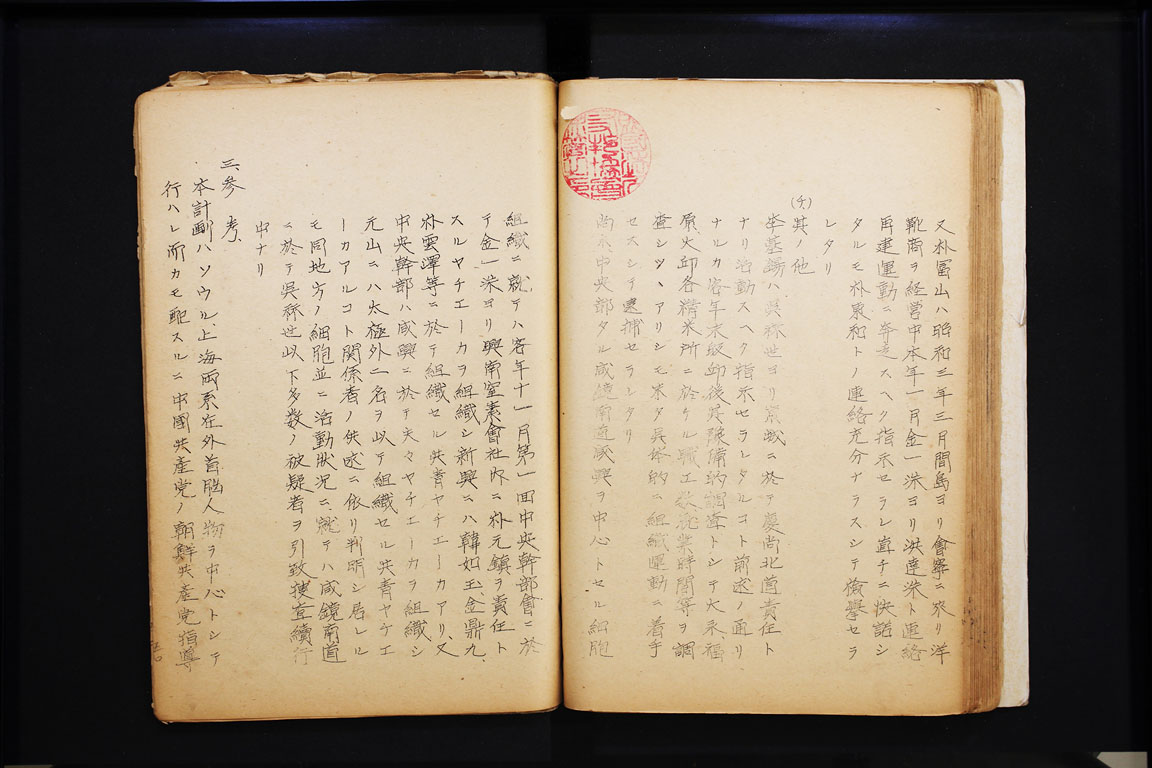 又朴冨山ハ昭和三年三月間島ヨリ會寧ニ来リ洋
靴商ヲ経営中本年一月金一洙ヨリ洪達洙ト連絡
再建運動ニ奔走スヘク指示セラレ直チニ快諾シ
タルモ朴東和トノ連絡充分ナラスシテ検擧セラ
レタリ
(チ)其ノ他
李基錫ハ呉秉世ヨリ京城ニ於テ慶尚北道責任ト
ナリ活動スヘク指示セラレタルコト前述ノ通リ
ナルカ客年末段邱後其豫備的調査トシテ大邱、福
原大邱各精米所ニ於ケル職工数就業時間等ヲ調
査シツヽアリシモ未タ具体的ニ組織運動ニ着手
セスシテ逮捕セラレタリ
尚ホ中央部タル咸鏡南道咸興ヲ中心トセル細胞
組織ニ就テハ客年十一月第一回中央幹部會ニ於
テ金一洙ヨリ興南窒素會社内ニ朴元鎮ヲ責任ト
スルヤチエーカヲ組織シ新興ニハ韓如玉、金鼎九、
朴雲澤等ニ於テ組織セル共青ヤチエーカアリ、又
中央幹部ハ咸興ニ於テ夫々ヤチエーカヲ組織シ
元山ニハ太極外二名ヲ以テ組織セル共青ヤチエ
ーカアルコト関係者ノ供述ニ依リ判明シ居レル
モ同地方ノ細胞並ニ活動状况ニ就テハ咸鏡南道
ニ於テ呉秉世以下多数ノ被疑者ヲ引致捜査續行
中ナリ
三、参考、
本計劃ハソウル、上海両系在外首脳人物ヲ中心トシテ
行ハレ而カモ配スルニ中國共産党ノ朝鮮共産党指導